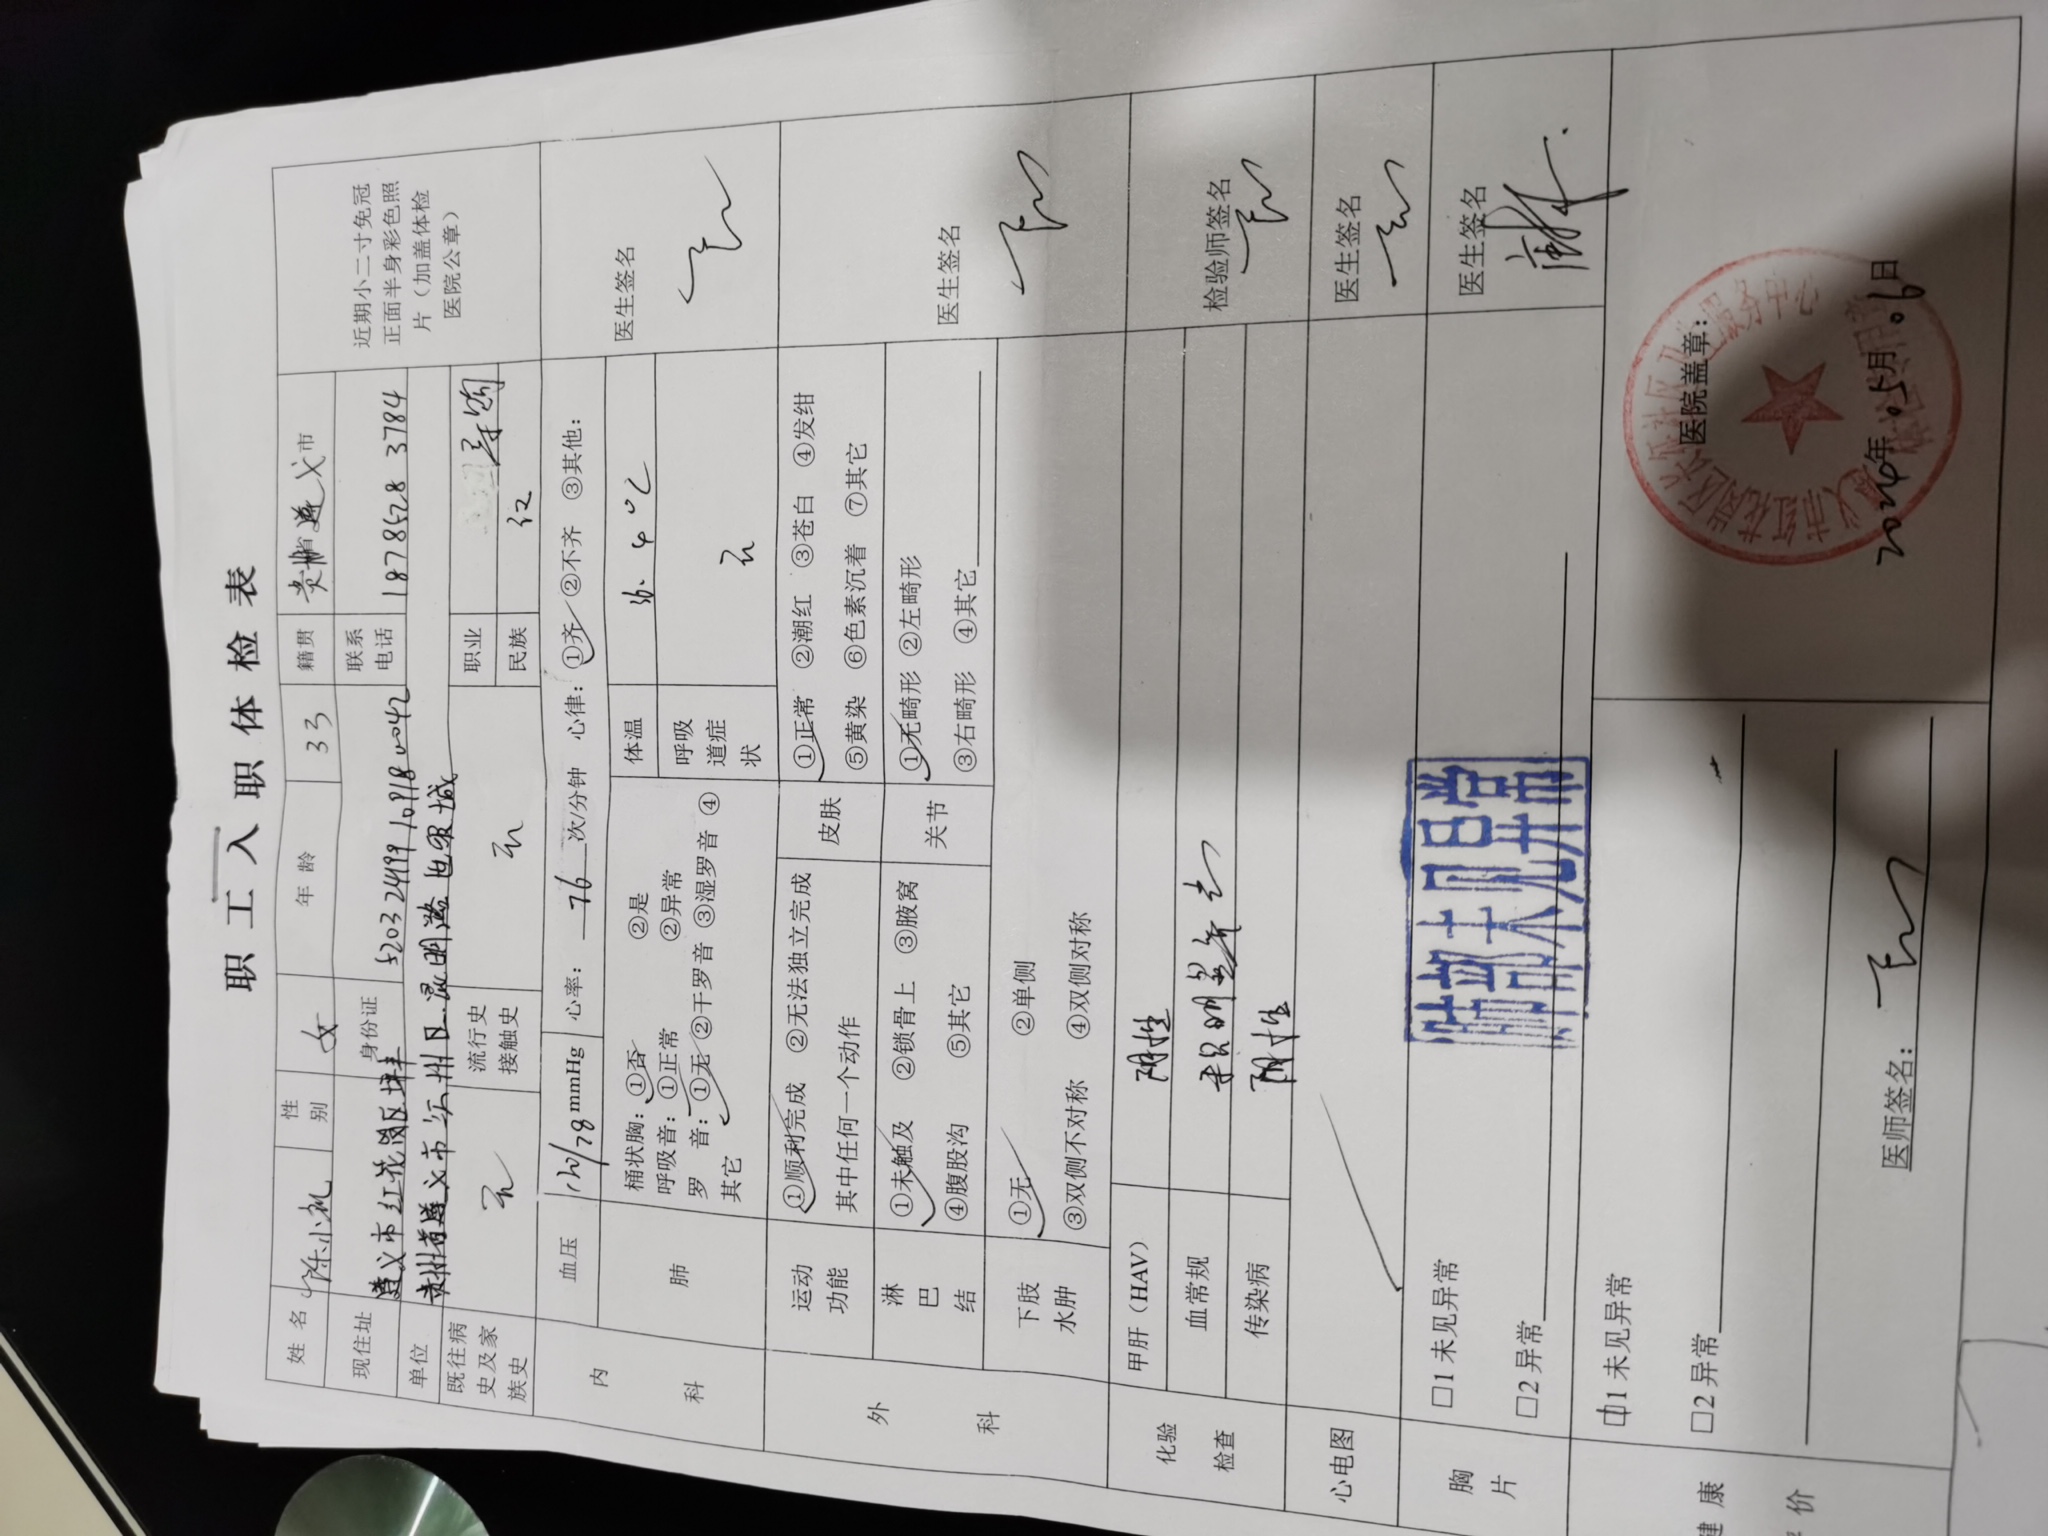 职工入职体检表
姓名 陈小 性别 女 年龄 33 籍贯 贵州省遵义市
近期小二寸免冠
正面半身彩色照
片（加盖体检
医院公章）
现住址 遵义市红花岗区 身份证 联系电话 187 8528 3784
单位 贵州省遵义市汇川区昆明路
既往病史及家族史 无 流行史接触史 无 职业 导购
民族 汉
内科
血压 120/78 mmHg 心率: 76 次/分钟 心律: ①齐 ②不齐 ③其他:
肺 桶状胸: ①否 ②是
呼吸音: ①正常 ②异常
罗 音: ①无 ②干罗音 ③湿罗音 ④
其它
体温 36.4℃
呼吸道症状 无
医生签名
外科
运动功能 ①顺利完成 ②无法独立完成
其中任何一个动作
皮肤 ①正常 ②潮红 ③苍白 ④发绀
⑤黄染 ⑥色素沉着 ⑦其它
淋巴结 ①未触及 ②锁骨上 ③腋窝
④腹股沟 ⑤其它
关节 ①无畸形 ②左畸形
③右畸形 ④其它
下肢水肿 ①无 ②单侧
③双侧不对称 ④双侧对称
医生签名
化验检查
甲肝（HAV） 阴性
血常规 未见明显异常
传染病 阴性
检验师签名
心电图
医生签名
胸片
□1 未见异常
□2 异常
肺部未见异常
医生签名
健康
评价
□1 未见异常
□2 异常
医师签名:
医院盖章:
2024年05月06日